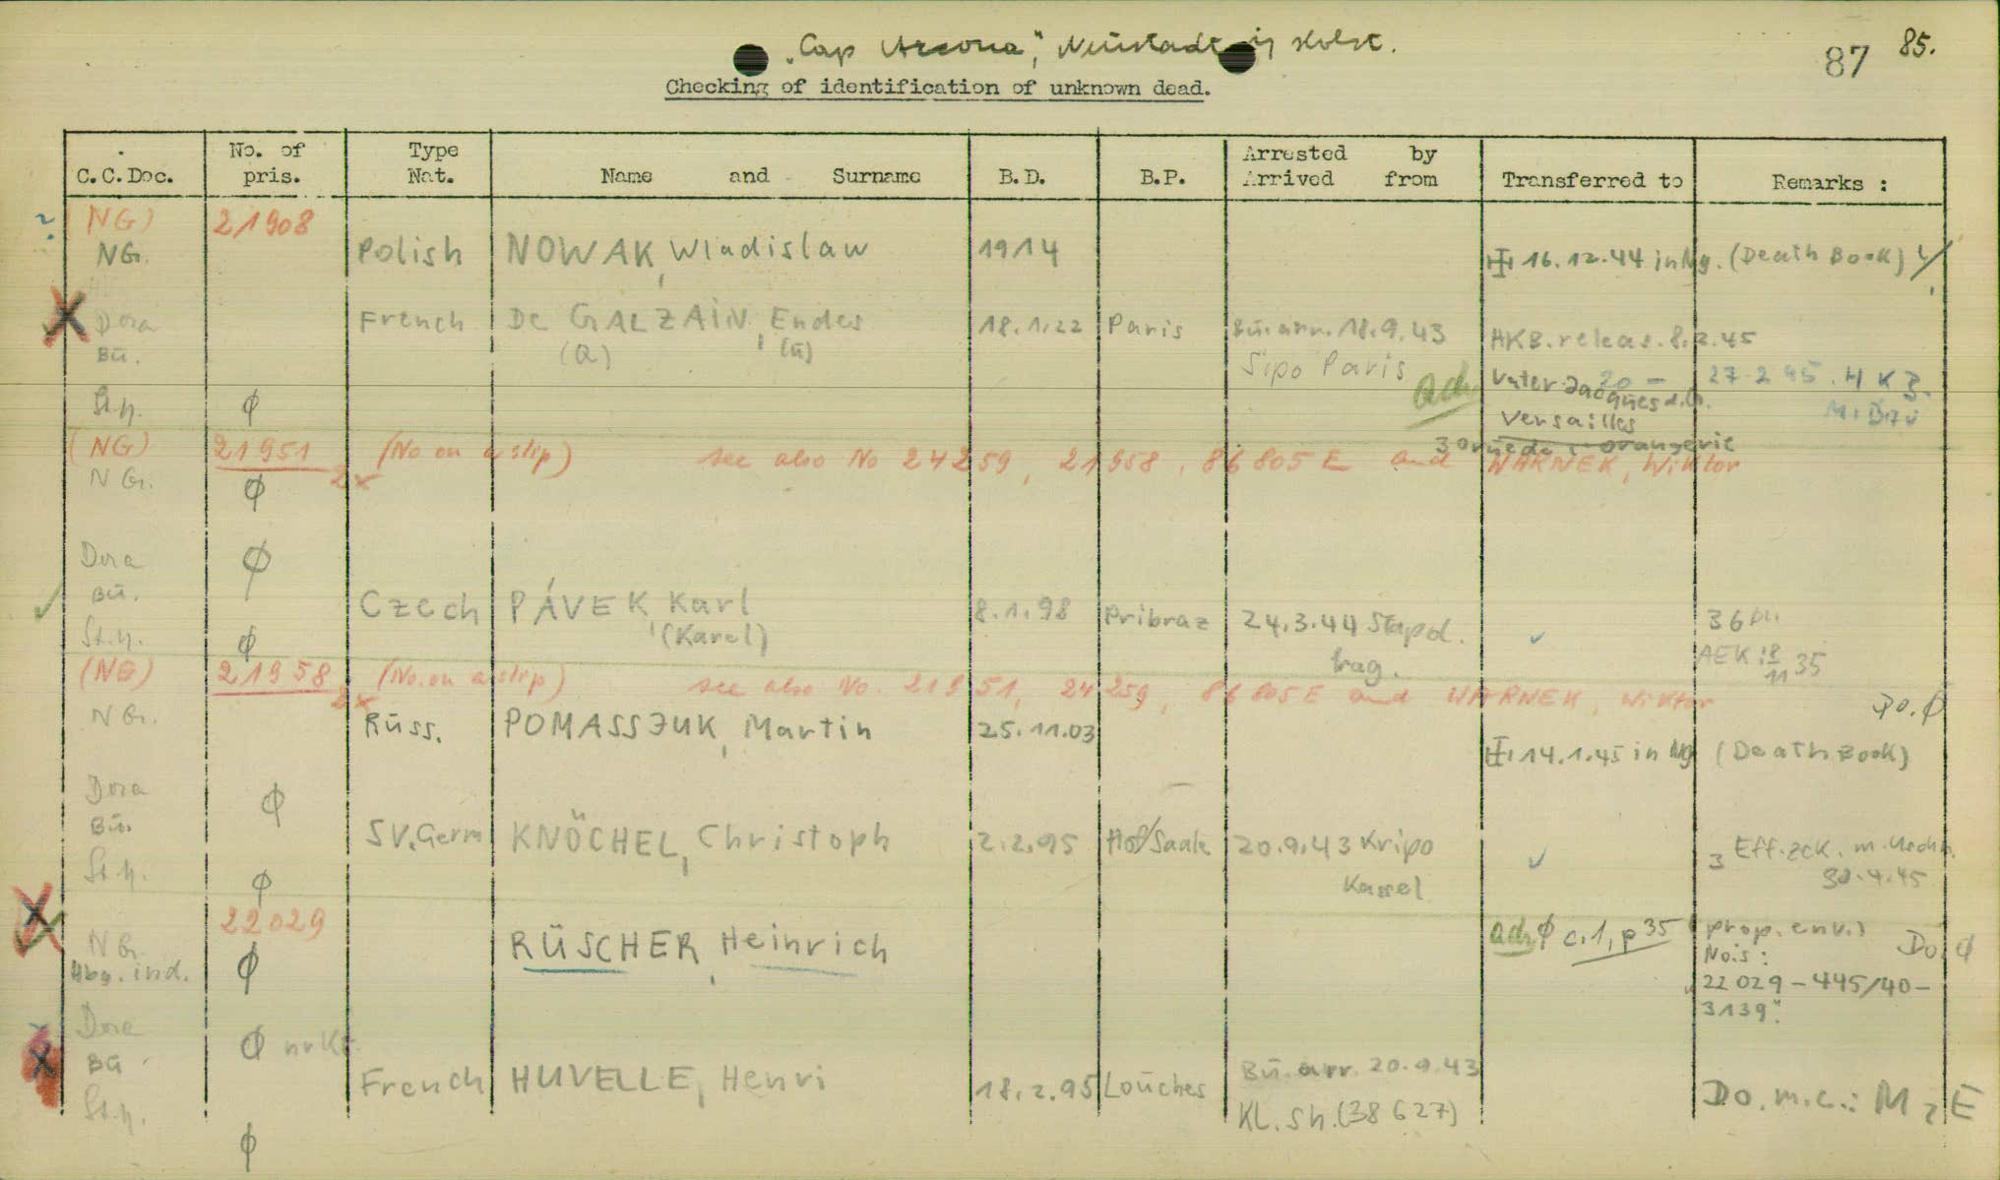 "Cap Arcona", Neustadt i/ Holst.
87 85.
Checking of identification of unknown dead.
C.C.Doc. No. of pris. Type Nat. Name and Surname B.D. B.P. Arrested by Arrived from Transferred to Remarks :
? (NG) 21908
NG. Polish NOWAK, Wladislaw 1914 16.12.44 in Ng. (Death Book)
X Dora French De GALZAIN, Endes 18.1.22 Paris Bu. arr. 18.9.43 HKB. releas. 8.2.45
Bu. (Q) (u) Sipo Paris
Vater Jacques d. G. 27.2.45. HKB
St.y. ϕ adr Versailles
30 rue de l'orangerie
(NG) 21951 (No on a slip) see also No 24259, 21958, 86805 E and WARNEK, Wiktor
N G. ϕ 2x
Dora ϕ
Bu. Czech PÁVEK, Karl 8.1.98 Pribraz 24.3.44 Stapol. 36
St.y. ϕ (Karel) Prag. AEK: 18/11 35
(NG) 21958 (No. on a slip) see also No. 21951, 24259, 86805 E and WARNEK, Wiktor
2x Do. ϕ
N G. Russ. POMASSJUK, Martin 25.11.03 14.1.45 in Ng (Death Book)
Dora ϕ
Bu. SV. Germ KNÖCHEL, Christoph 2.2.95 Hof/Saale 20.9.43 Kripo Eff. zck.
St.y. ϕ Kassel 30.4.45
22029
N G. RÜSCHER, Heinrich adr ϕ c.1, p 35 (prop. env.) Do. ϕ
Abg. ind. ϕ No.s:
"22029 - 445/40 -
3139".
Dora ϕ
Bu French HUVELLE, Henri 18.2.95 Louches Bu. arr. 20.9.43 Do. m.c.: M 2 E
St.y. KL. Sh. (38627)
ϕ